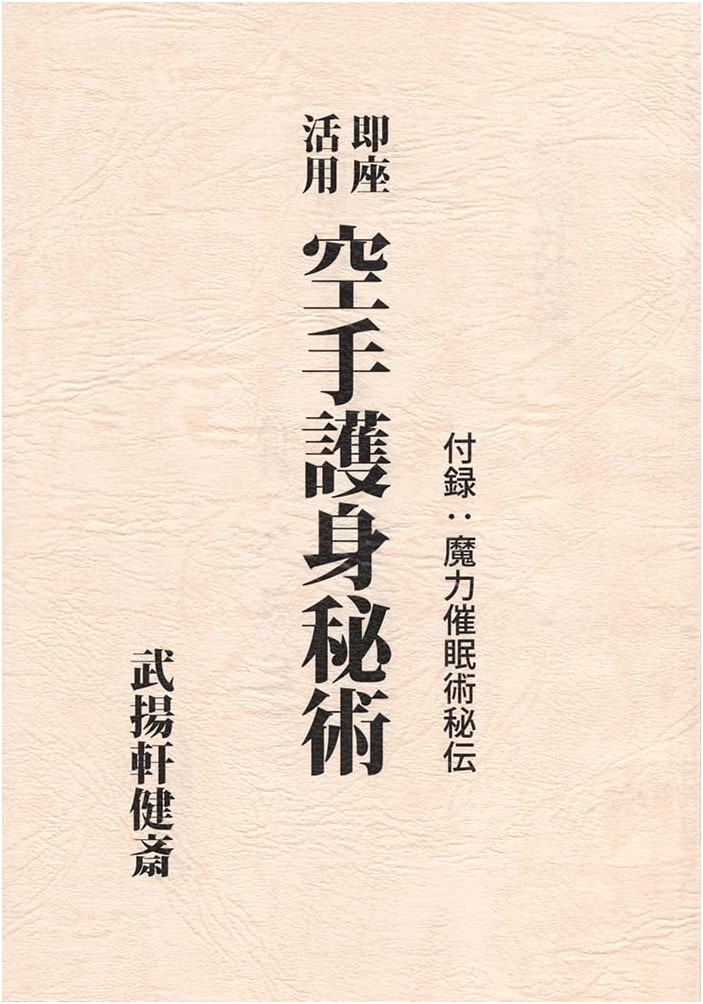 付録：魔力催眠術秘伝
即座
活用
空手護身秘術
武揚軒健斎